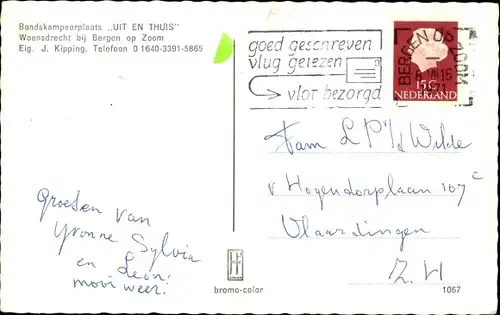 Bondskampeerplaats „UIT EN THUIS"
Woensdrecht bij Bergen op Zoom
Eig. J. Kipping, Telefoon 0 1640-3391-5865
goed geschreven
vlug gelezen
vlot bezorgd
BERGEN OP ZOOM
15 C
NEDERLAND
Fam L P v/d Wilde
v Hogendorplaan 167 c
Vlaardingen
Z. H
Groeten van
Yvonne Sylvia
en Leon.
mooi weer!
bromo-color
1067